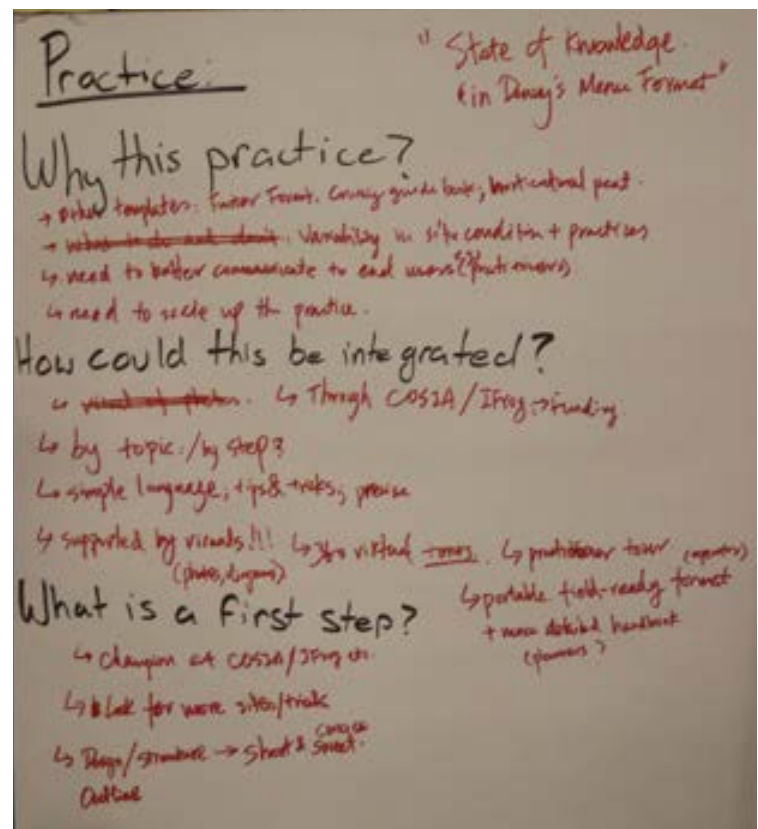 Practice:
"State of Knowledge
in Denny's Menu Format"
Why this practice?
→ other templates: Farmer Format, guide book, horticultural peat.
→ what to do and don't. Variability in site condition + practices
↳ need to better communicate to end users (practitioners)
↳ need to scale up the practice.
How could this be integrated?
↳ Through COSIA/IFrog → Funding
↳ by topic / by step?
↳ simple language, tips & tricks, precise
↳ supported by visuals!!! ↳ 360 virtual tours. ↳ practitioner tour (operators)
(photos, diagrams)
↳ portable field-ready format
+ more detailed handbook
(planners)
What is a first step?
↳ Champion at COSIA/IFrog
↳ Look for more sites/trials
↳ Design/structure → short & sweet. concise
Outline